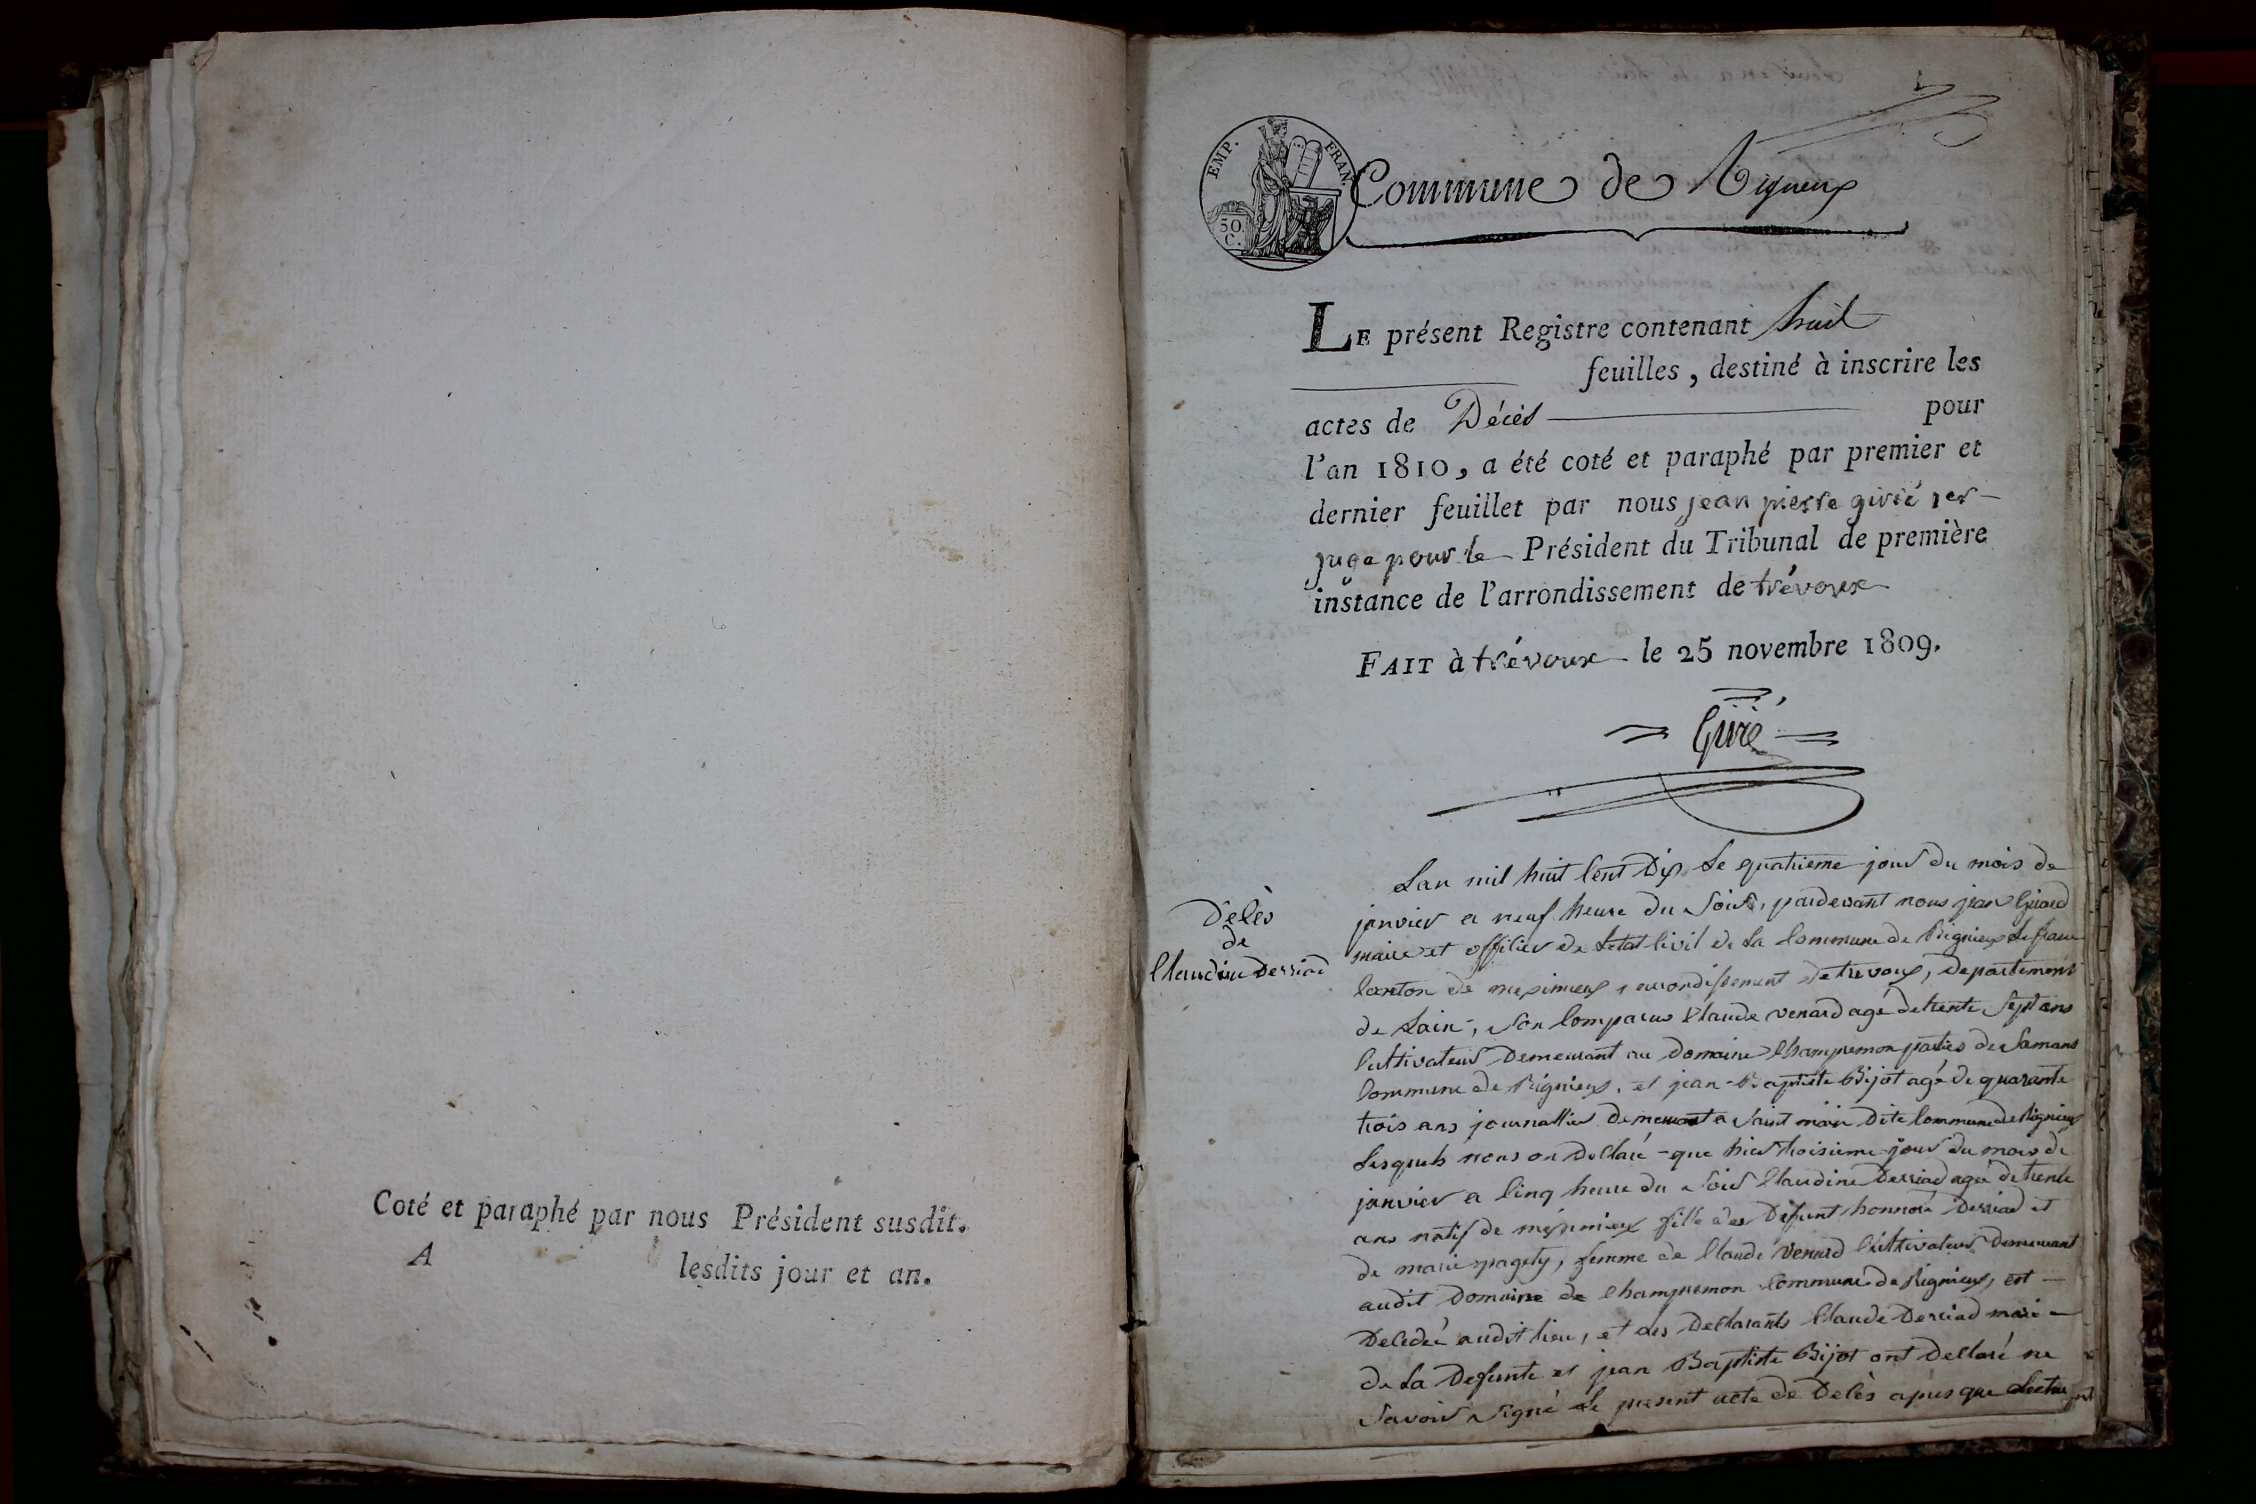 Coté et paraphé par nous Président susdit.
A lesdits jour et an.
EMP. FRAN.
50
C.
Commune de Rigneux
LE présent Registre contenant huit
feuilles, destiné à inscrire les
actes de Décès pour
l'an 1810, a été coté et paraphé par premier et
dernier feuillet par nous jean pierre givré 1er
juge pour le Président du Tribunal de première
instance de l'arrondissement de trévoux
FAIT à trévoux le 25 novembre 1809.
Givré
Décès
de
Claudine Derriad
Lan mil huit Cent Dix Le quatrieme jour du mois de
janvier a neuf heure du Soir, pardevant nous jean Girard
maire et officier de Letat Civil de La Commune de Rignieux Le franc
Canton de meximieux, arrondissement de trevoux, Departement
de Lain, Son Comparus Claude venard agé de trente Sept ans
Cultivateur Demeurant au Domaine Champremon parties de Samans
Commune de Rignieux, et jean-Baptiste Bijot agé de quarante
trois ans journallier Demeurant a Saint Dite Commune de Rignieux
Lesquels nous on Dellaré que hier troisieme jour du mois de
janvier a Cinq heure du Soir Claudine Derriad agée de trente
ans natif de méximieux fille de Defunt honnoré Derriad et
de marie pagety, femme de Claude Venard Cultivateur Demeurant
audit Domaine de Champremon Commune de Rignieux, est
Decedée audit lieu, et Les Dellarants Claude Derriad mari
de La Defunte et jean Baptiste Bijot ont Dellaré ne
Savoir Signé Le present acte de Decès apres que Lecture